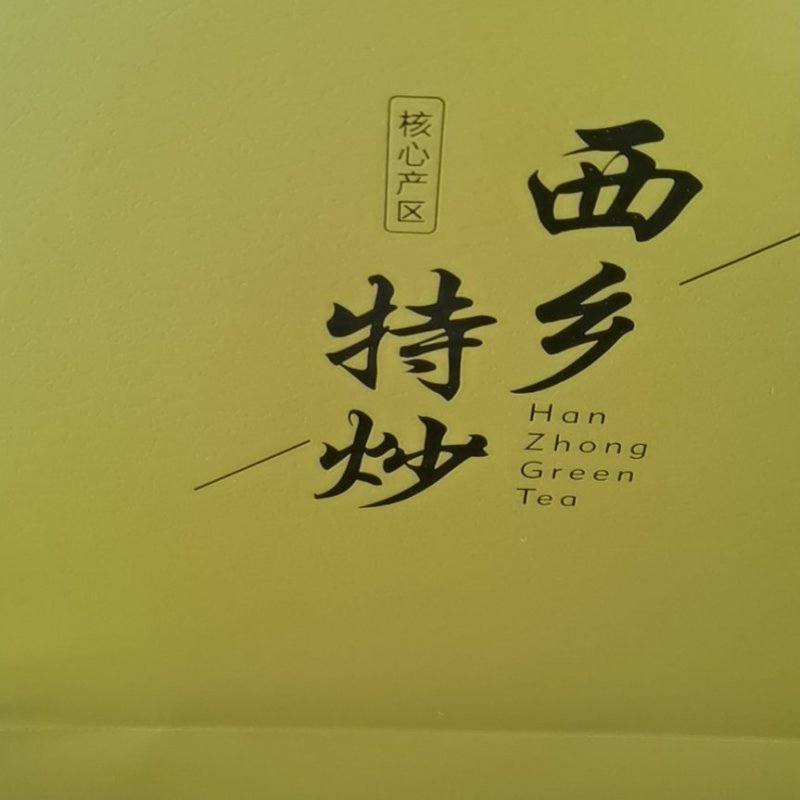 西乡
特炒
核心产区
Han
Zhong
Green
Tea